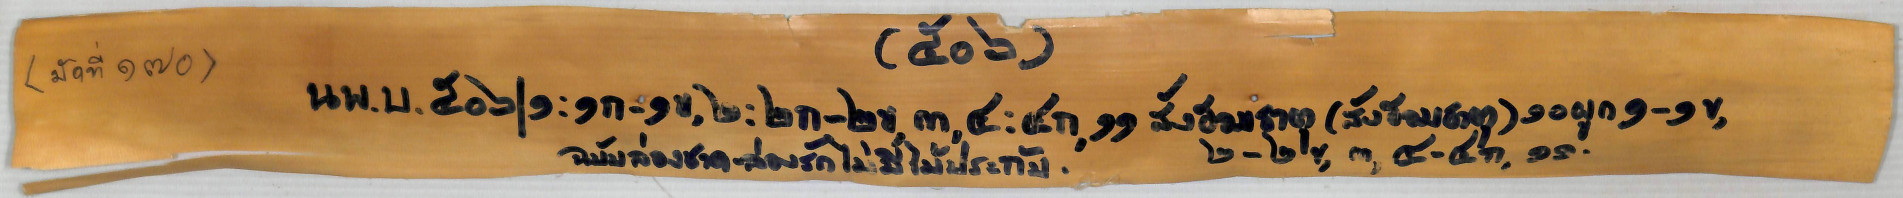 (๕๐๖)
(มัดที่ ๑๗๐)
นพ.บ. ๕๐๖/๑:๑ก-๑ข, ๒:๒ก-๒ข, ๓, ๔:๔ก, ๑๑ สังฮอมธาตุ (สังฮอมธาตุ) ๑๐ ผูก ๑-๑ข,
๒-๒ข, ๓, ๔-๔ก, ๑๑.
ฉบับล่องชาด-ล่องรักไม่มีไม้ประกับ.